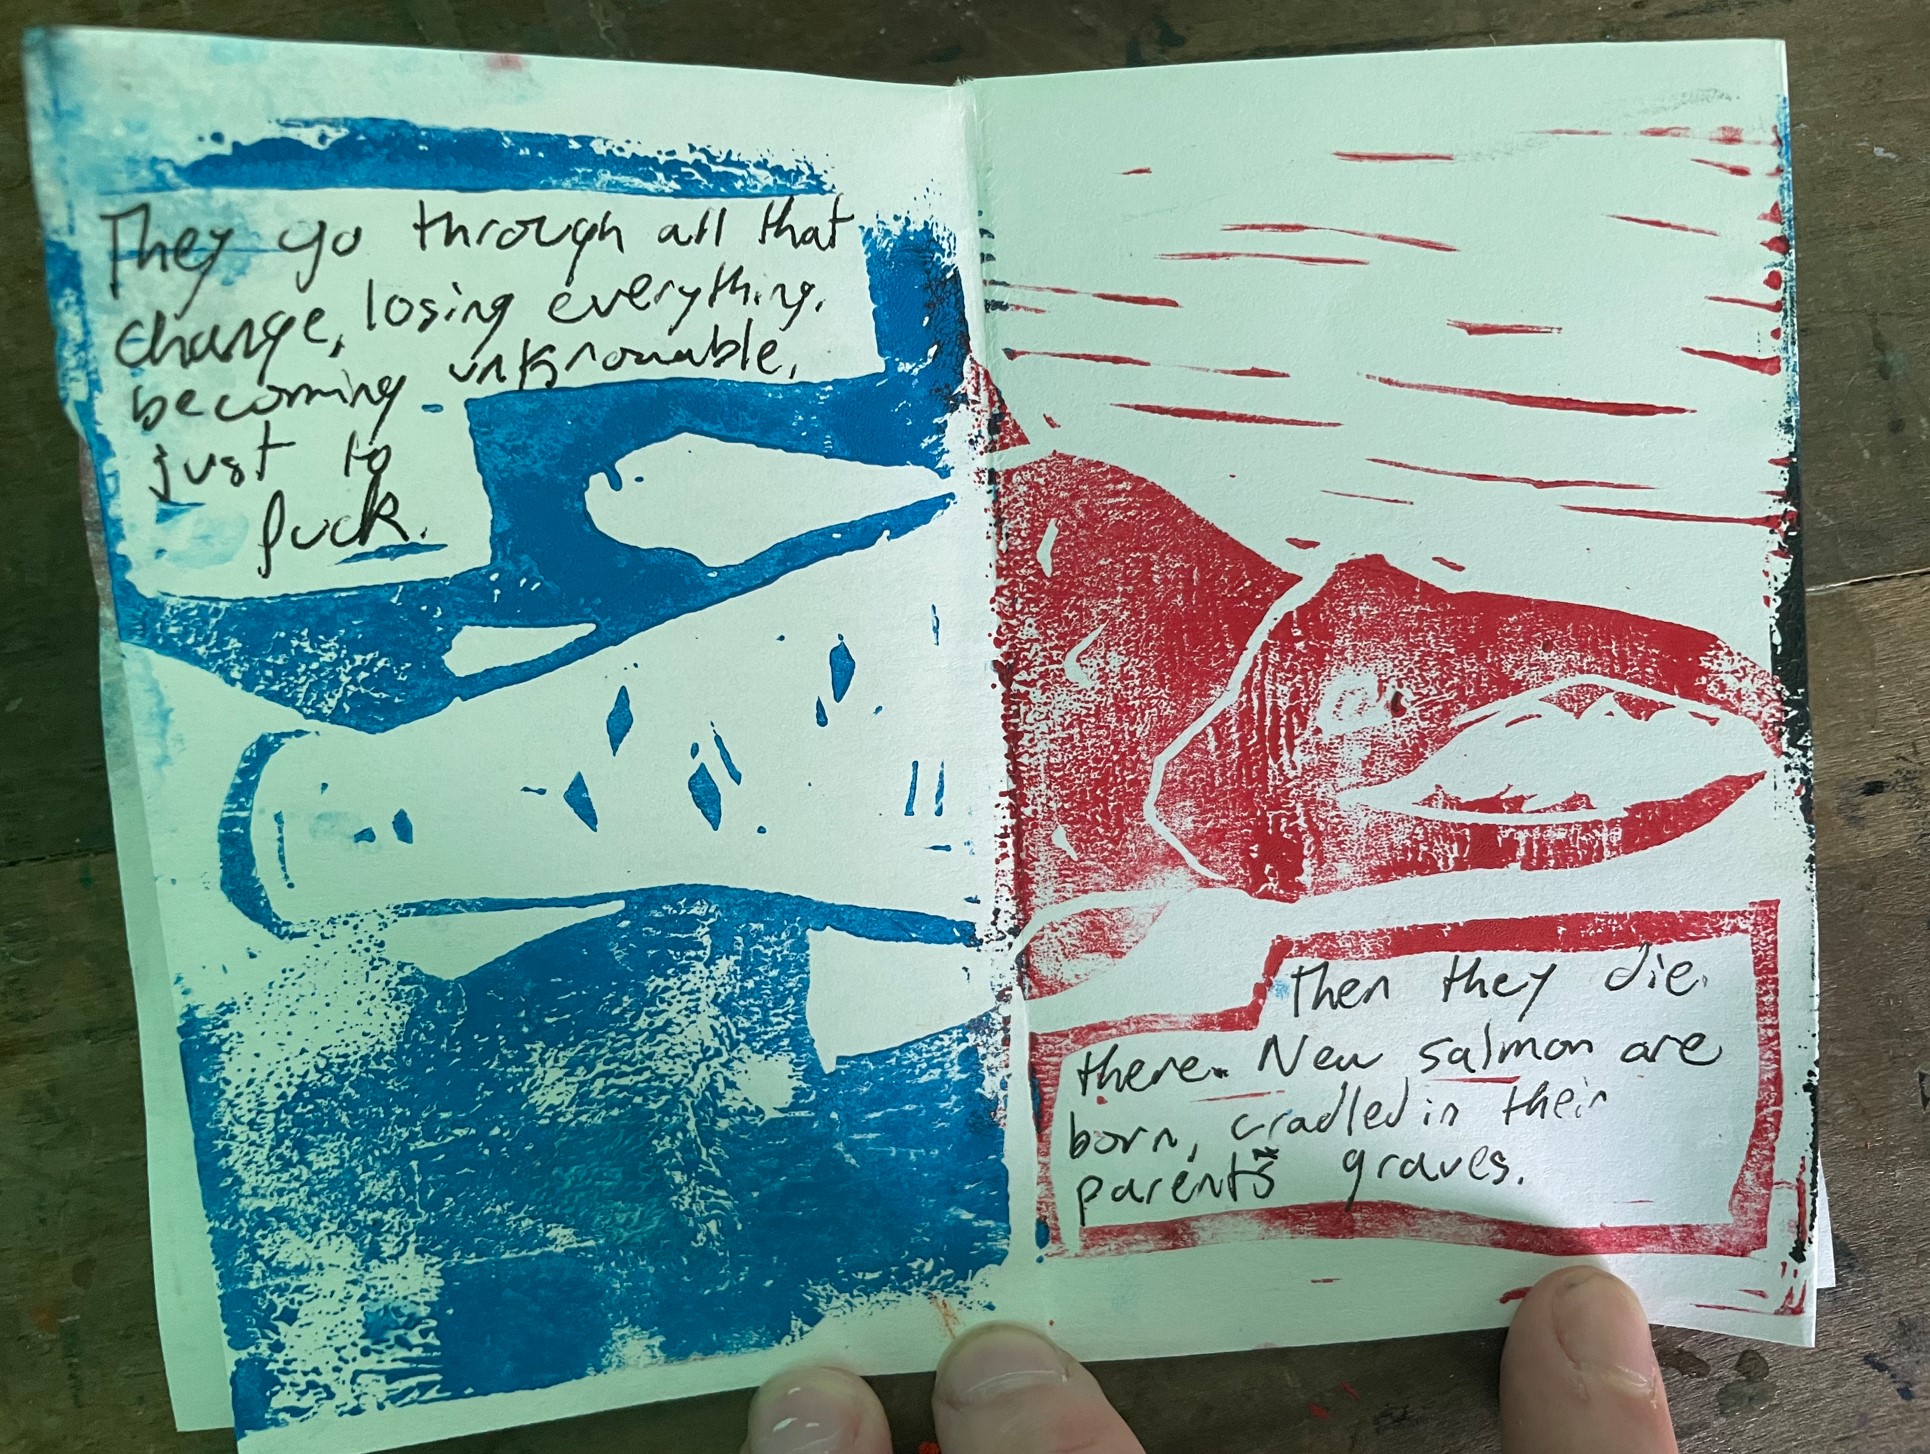 They go through all that
change, losing everything,
becoming unknowable,
just to
fuck.
Then they die
there. New salmon are
born, cradled in their
parents' graves.